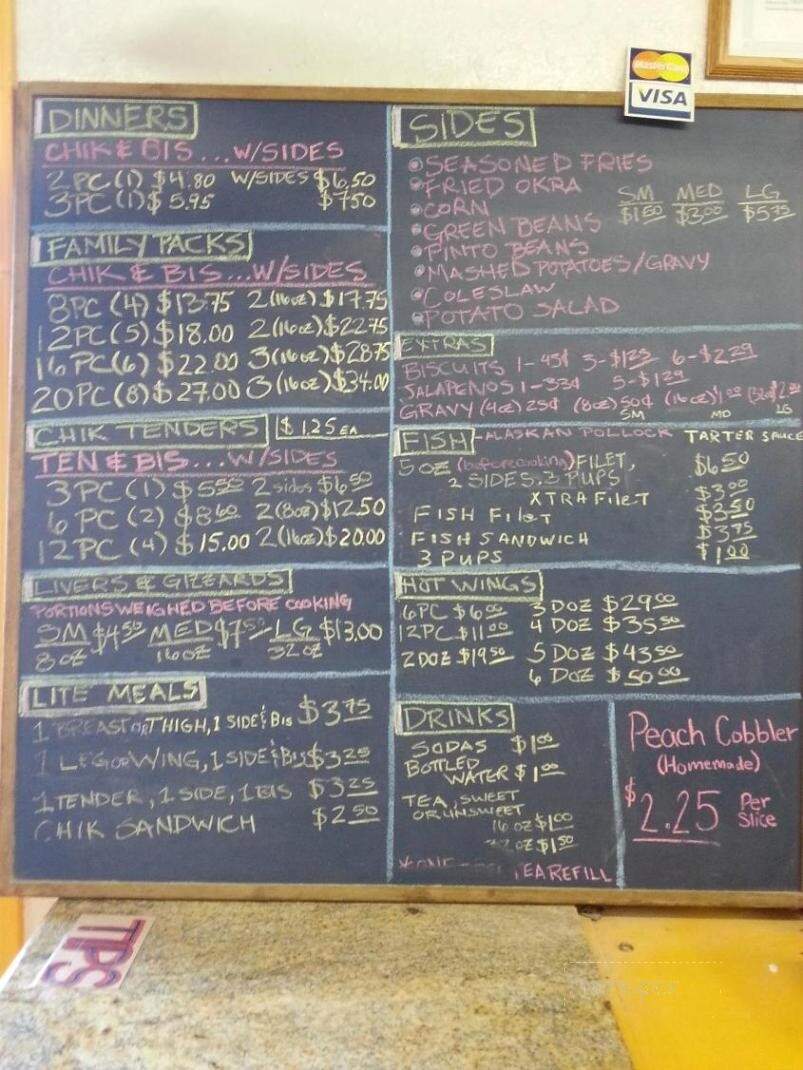 MasterCard
VISA
DINNERS
CHIK & BIS...W/SIDES
2 PC (1) $4.80 W/SIDES $6.50
3 PC (1) $5.95 $7.50
FAMILY PACKS
CHIK & BIS...W/SIDES
8 PC (4) $13.75 2 (16oz) $17.75
12 PC (5) $18.00 2 (16oz) $22.75
16 PC (6) $22.00 3 (16oz) $28.75
20 PC (8) $27.00 3 (16oz) $34.00
CHIK TENDERS $1.25 EA
TEN & BIS...W/SIDES
3 PC (1) $5.50 2 sides $6.50
6 PC (2) $8.60 2 (8oz) $12.50
12 PC (4) $15.00 2 (16oz) $20.00
LIVERS & GIZZARDS
PORTIONS WEIGHED BEFORE COOKING
SM $4.50 MED $7.50 LG $13.00
8 OZ 16 OZ 32 OZ
LITE MEALS
1 BREAST OR THIGH, 1 SIDE & BIS $3.75
1 LEG OR WING, 1 SIDE & BIS $3.25
1 TENDER, 1 SIDE, 1 BIS $3.25
CHIK SANDWICH $2.50
SIDES
SEASONED FRIES
FRIED OKRA
CORN
GREEN BEANS
PINTO BEANS
MASHED POTATOES/GRAVY
COLESLAW
POTATO SALAD
SM MED LG
$1.50 $3.00 $5.75
EXTRAS
BISCUITS 1-45¢ 3-$1.25 6-$2.29
JALAPENOS 1-33¢ 5-$1.29
GRAVY (4oz) 25¢ (8oz) 50¢ (16oz) $1.00
SM MD LG
FISH - ALASKAN POLLOCK TARTER SAUCE
5 OZ (before cooking) FILET, $6.50
2 SIDES, 3 PUPS
XTRA FILET $3.00
FISH FILET $3.50
FISH SANDWICH $3.75
3 PUPS $1.00
HOT WINGS
6 PC $6.00 3 DOZ $29.00
12 PC $11.00 4 DOZ $35.50
2 DOZ $19.50 5 DOZ $43.50
6 DOZ $50.00
DRINKS
SODAS $1.00
BOTTLED
WATER $1.00
TEA, SWEET
OR UNSWEET
16 OZ $1.00
32 OZ $1.50
TEA REFILL
Peach Cobbler
(Homemade)
$2.25 Per
Slice
TIPS